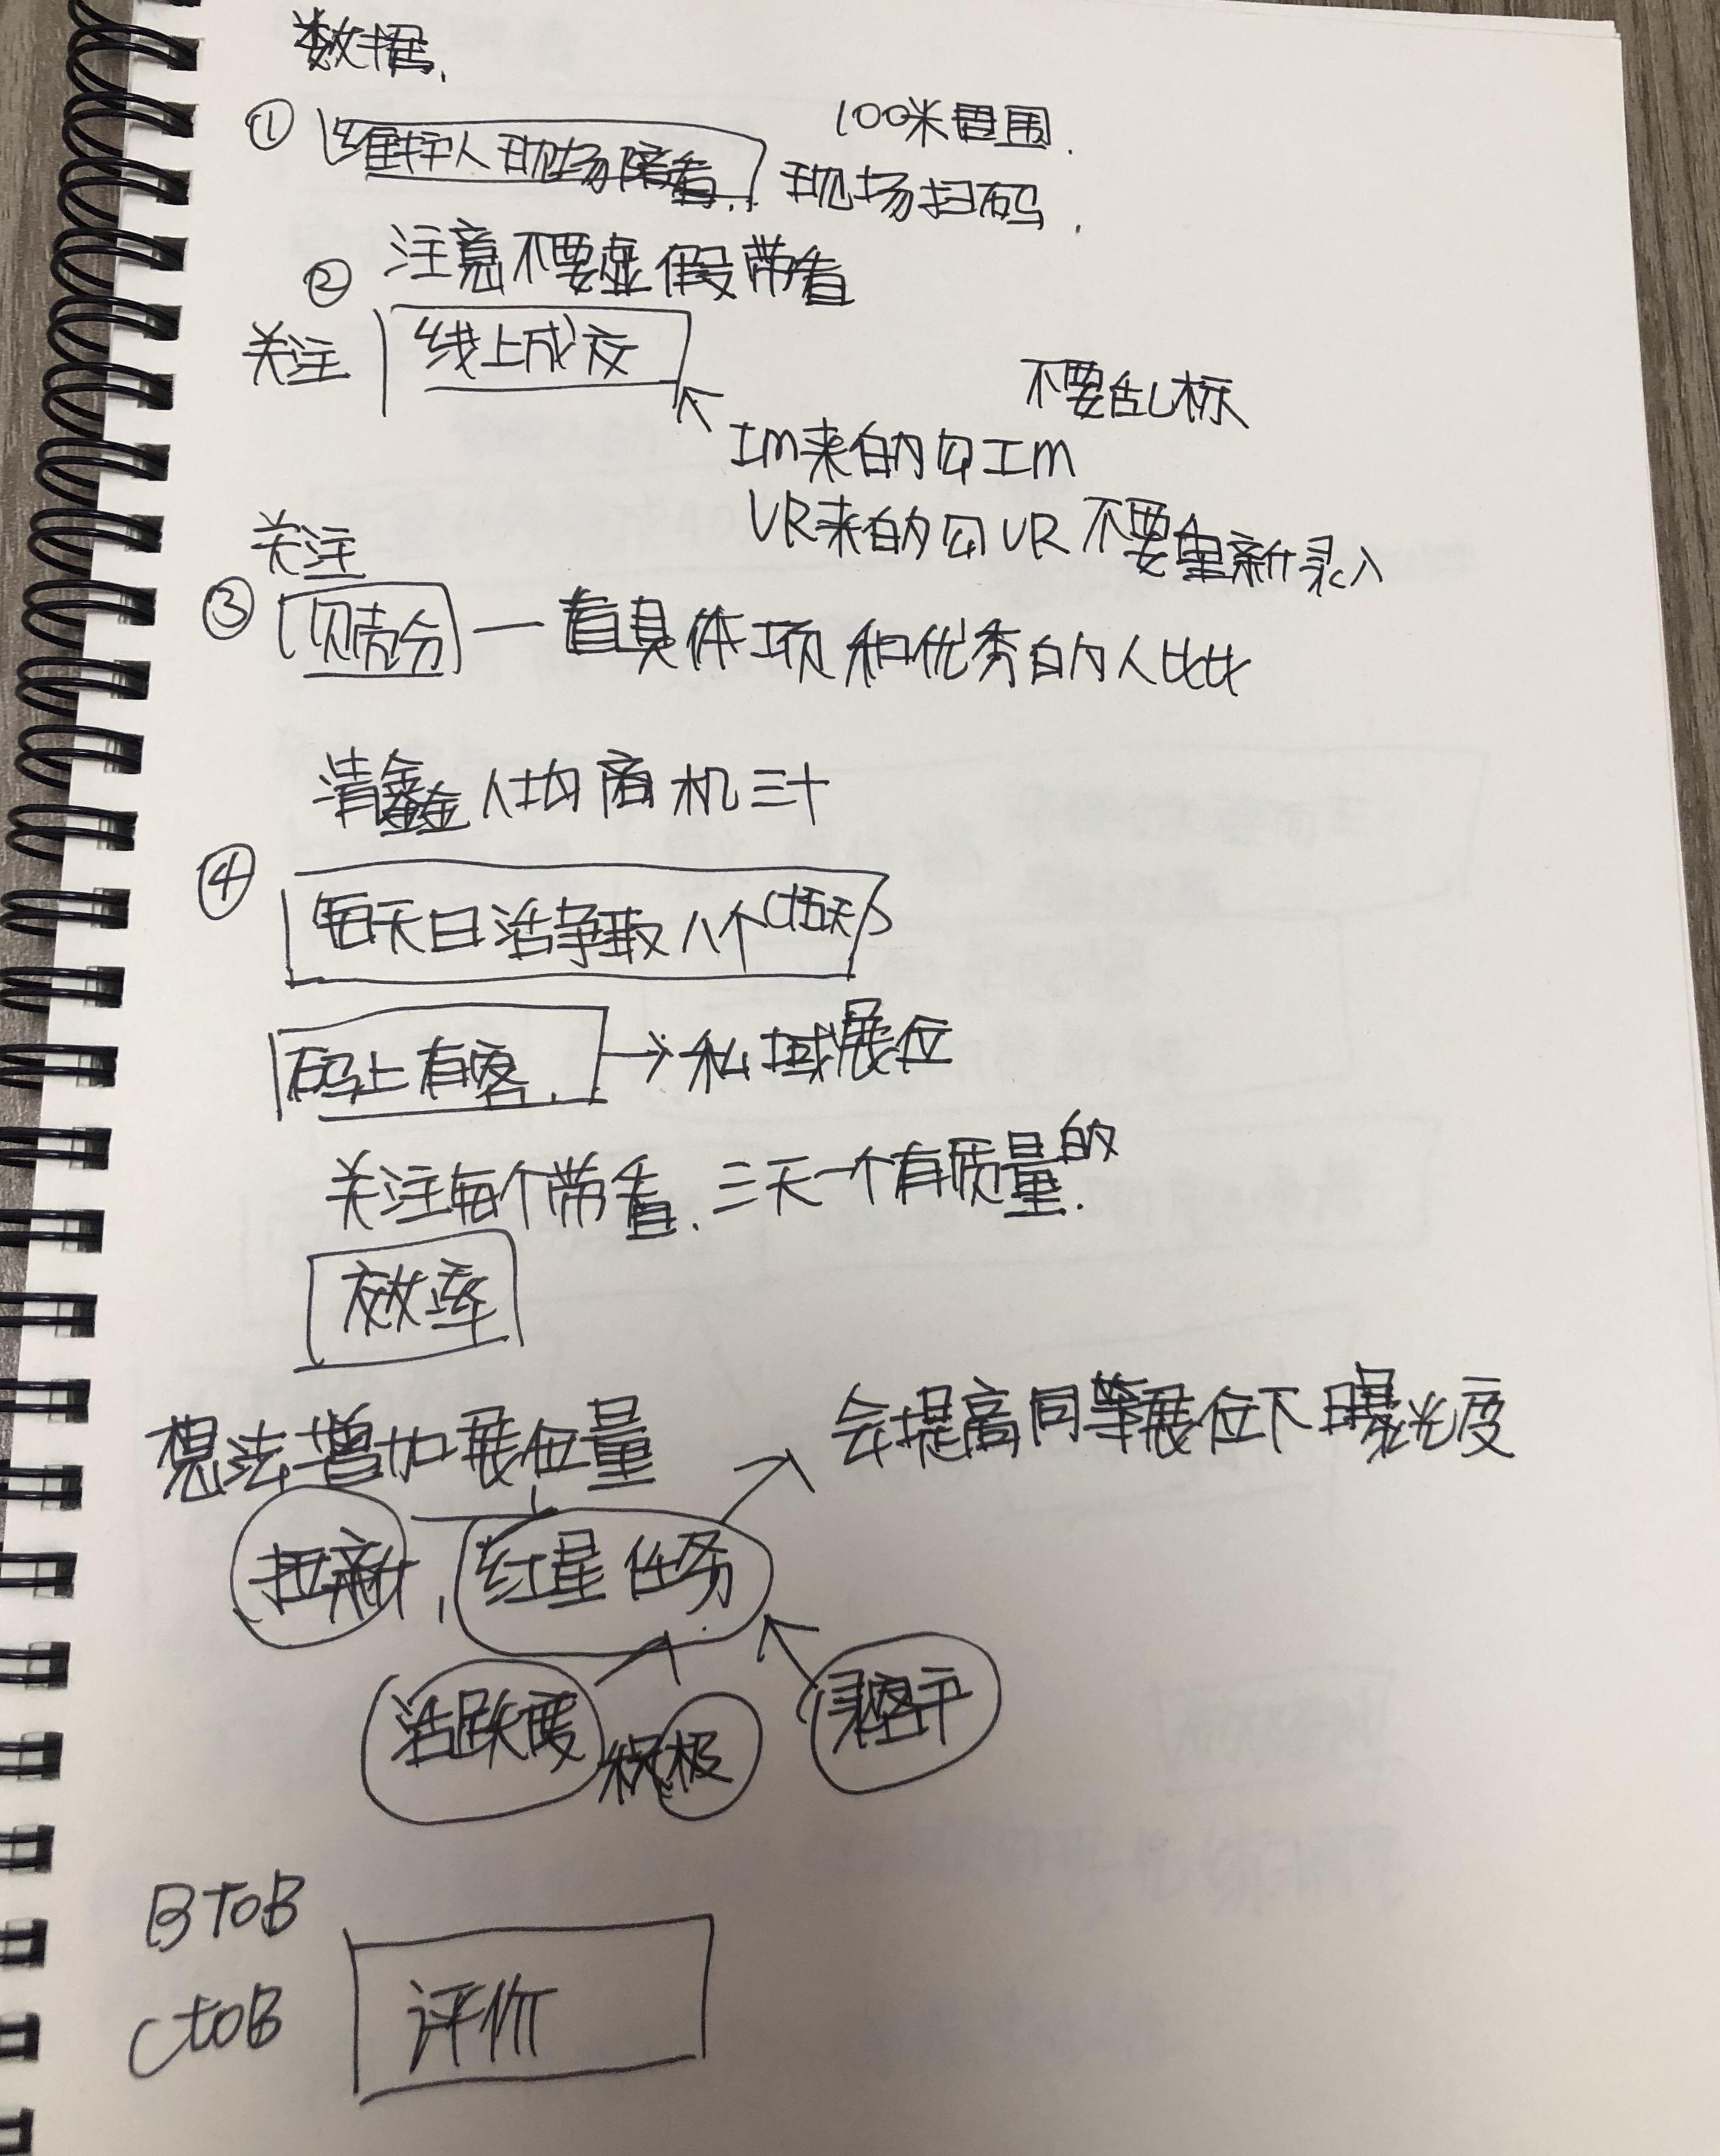 数据.
100米范围.
① 维护人现场陪看. 现场扫码.
② 注意不要虚假带看
关注 线上成交
不要乱标
Im来的勾Im
VR来的勾VR 不要重新录入
关注
③ 贝壳分 — 看具体项 和优秀的人比比
清鑫 人均商机三十
④
每天日活争取八个(十五天)
码上有客. → 私域展位
关注每个带看. 三天一个有质量的.
效率
想法增加展位量
会提高同等展位下曝光度
拉新, 红星任务
活跃度 积极 录客户
BToB
CtoB 评价